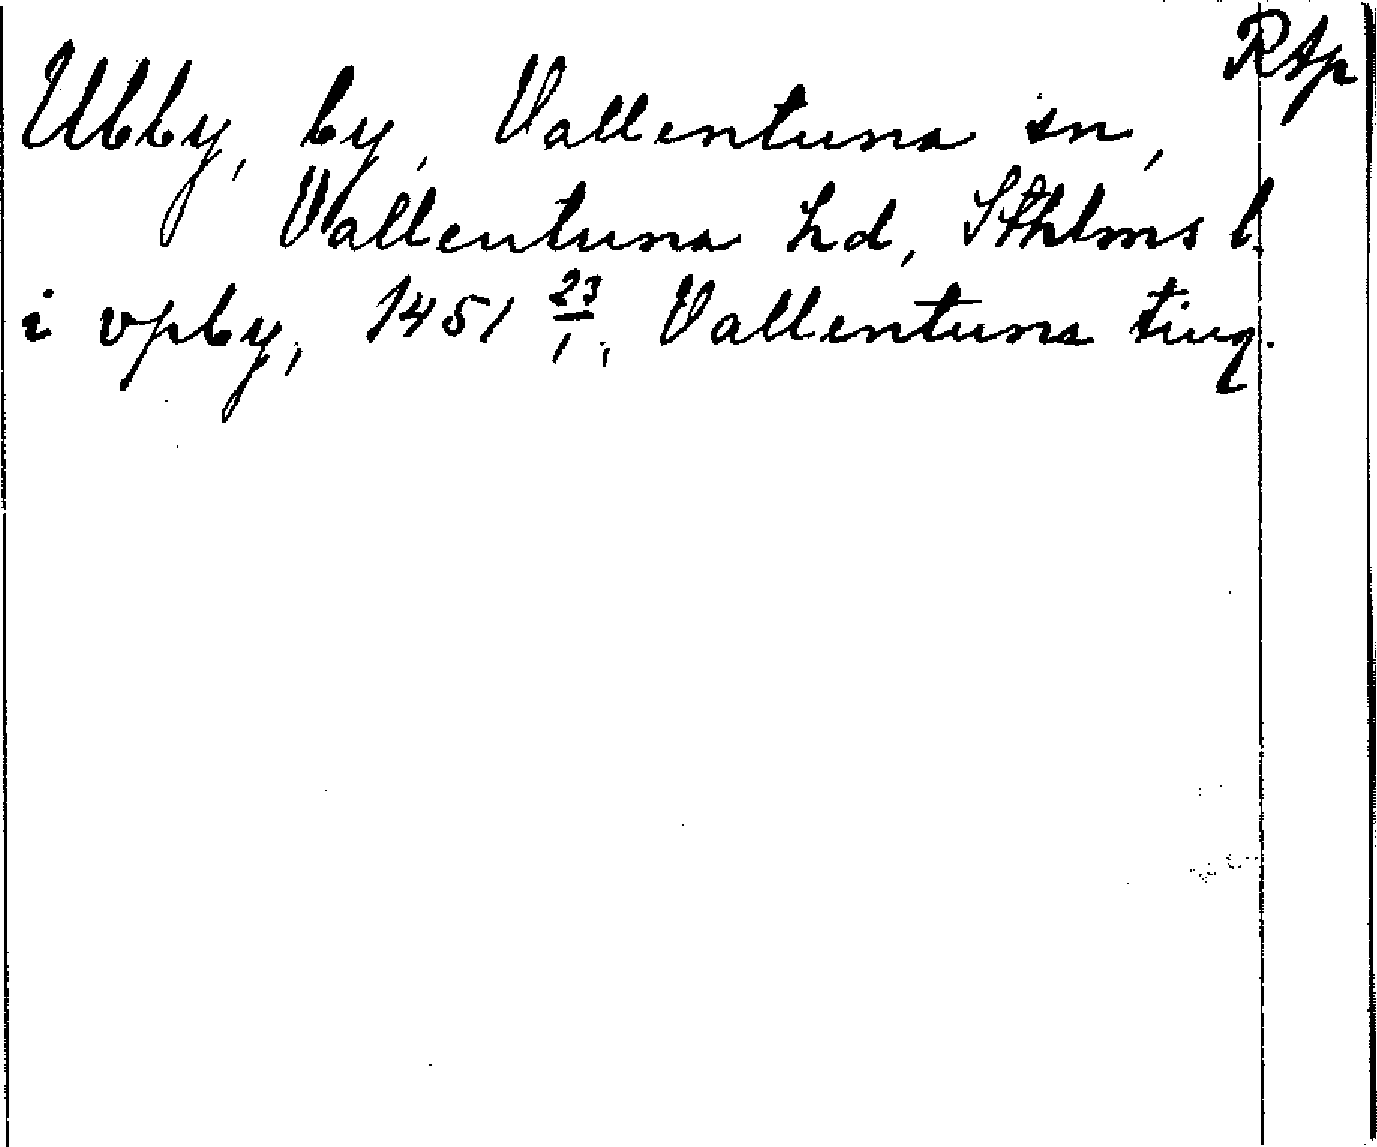 Rtp
Ubby, by, Vallentuna sn,
Vallentuna hd, Sthlms l.
i vpby, 1451 23/1, Vallentuna ting.